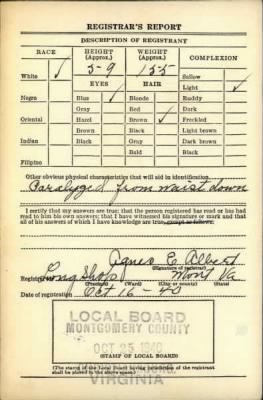 REGISTRAR'S REPORT
DESCRIPTION OF REGISTRANT
RACE HEIGHT (Approx.) WEIGHT (Approx.) COMPLEXION
5-9 155 Sallow
White ✓ EYES HAIR Light ✓
Negro Blue ✓ Blonde Ruddy
Gray Red Dark
Oriental Hazel Brown ✓ Freckled
Brown Black Light brown
Indian Black Gray Dark brown
Bald Black
Filipino
Other obvious physical characteristics that will aid in identification:
Paralyzed from waist down
I certify that my answers are true; that the person registered has read or has had
read to him his own answers; that I have witnessed his signature or mark and that
all of his answers of which I have knowledge are true, except as follows:
Agnes E Albert
(Signature of registrar)
Registrar for Long Shop Mont Va
(Precinct) (Ward) (City or county) (State)
Date of registration Oct 16 - 40
LOCAL BOARD
MONTGOMERY COUNTY
OCT 25 1940
(STAMP OF LOCAL BOARD)
(The stamp of the Local Board having jurisdiction of the registrant
shall be placed in the above space.)
VIRGINIA